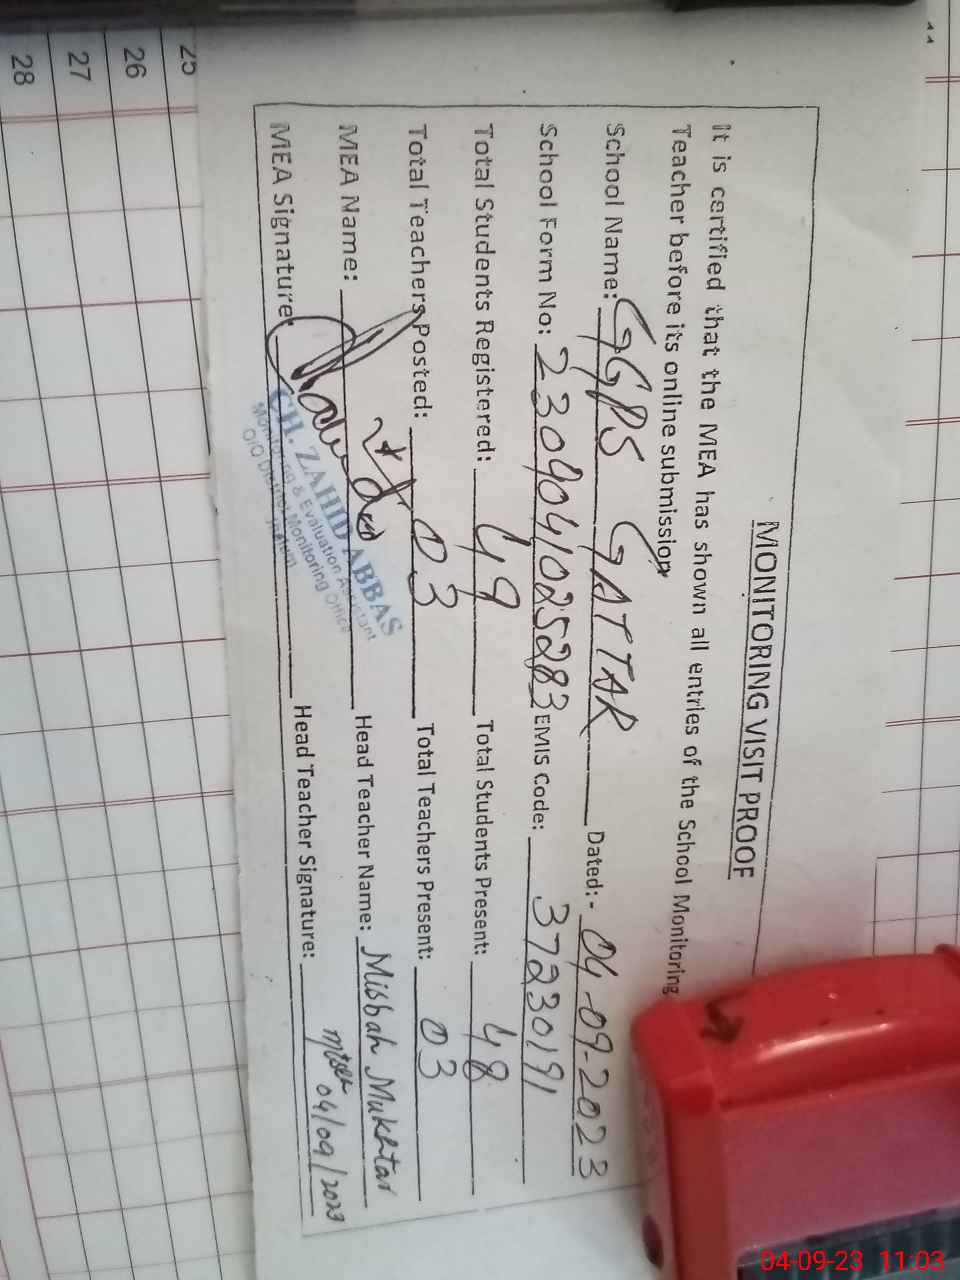 MONITORING VISIT PROOF
It is certified that the MEA has shown all entries of the School Monitoring
Teacher before its online submission
School Name: GGPS GATTAR Dated:- 04-09-2023
School Form No: 2309041025283 EMIS Code: 37230191
Total Students Registered: 49 Total Students Present: 48
Total Teachers Posted: 03 Total Teachers Present: 03
MEA Name: Head Teacher Name: Misbah Mukhtar
MEA Signature: Head Teacher Signature: 04/09/2023
CH. ZAHID ABBAS
Monitoring & Evaluation Assistant
O/O District Monitoring Office
25
26
27
28
04-09-23 11:03